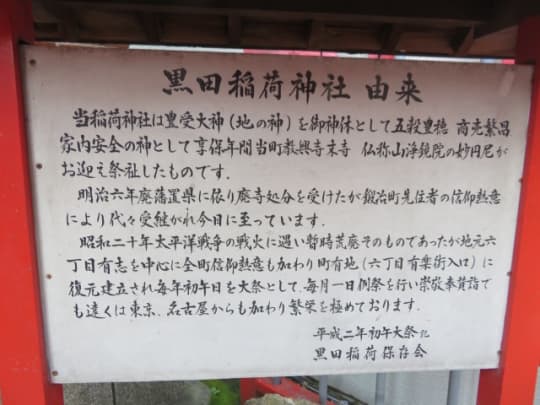 黒田稲荷神社 由来
当稲荷神社は豊受大神(地の神)を御神体として五穀豊穂 商売繁昌
家内安全の神として享保年間当町教興寺末寺 仏称山浄鏡院の妙円尼が
お迎え祭祉したものです.
明治六年廃藩置県に依り廃寺処分を受けたが鍛冶町先住者の信仰熱意
により代々受継がれ今日に至っています.
昭和二十年太平洋戦争の戦火に遇い暫時荒廃そのものであったが地元六
丁目有志を中心に全町信仰熱意も加わり町有地(六丁目有楽街入口)に
復元建立され毎年初午日を大祭として、毎月一日例祭を行い崇敬奉賛詣
でも遠くは東京、名古屋からも加わり繁栄を極めております.
平成二年初午大祭 記
黒田稲荷保存会